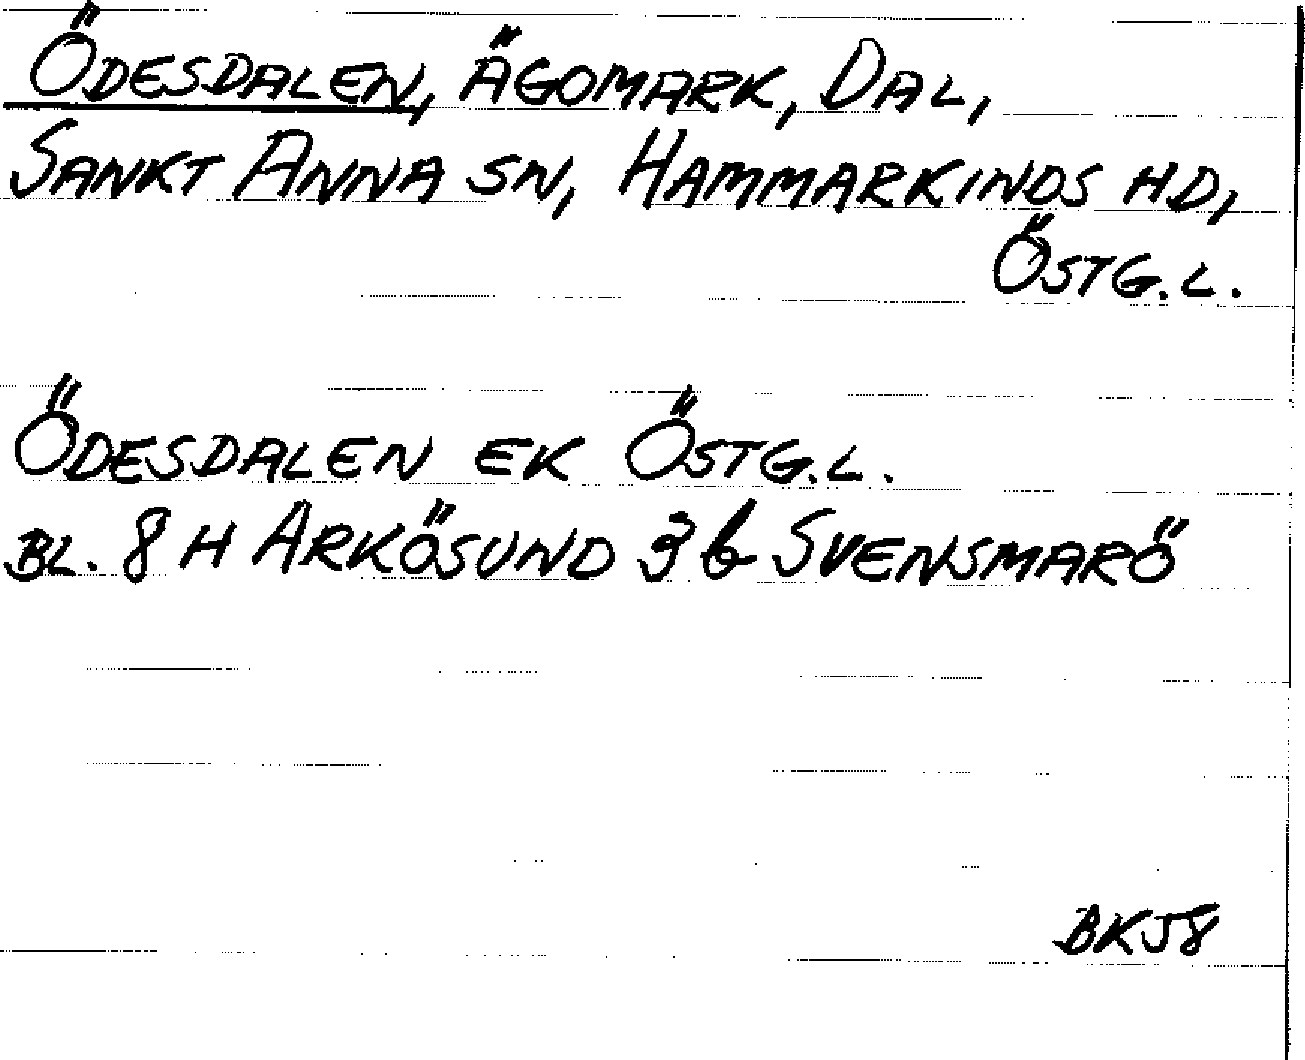 ÖDESDALEN, ÄGOMARK, DAL,
SANKT ANNA SN, HAMMARKINDS HD,
ÖSTG.L.
ÖDESDALEN EK ÖSTG.L.
BL. 8 H ARKÖSUND 3 b SVENSMARÖ
BK58